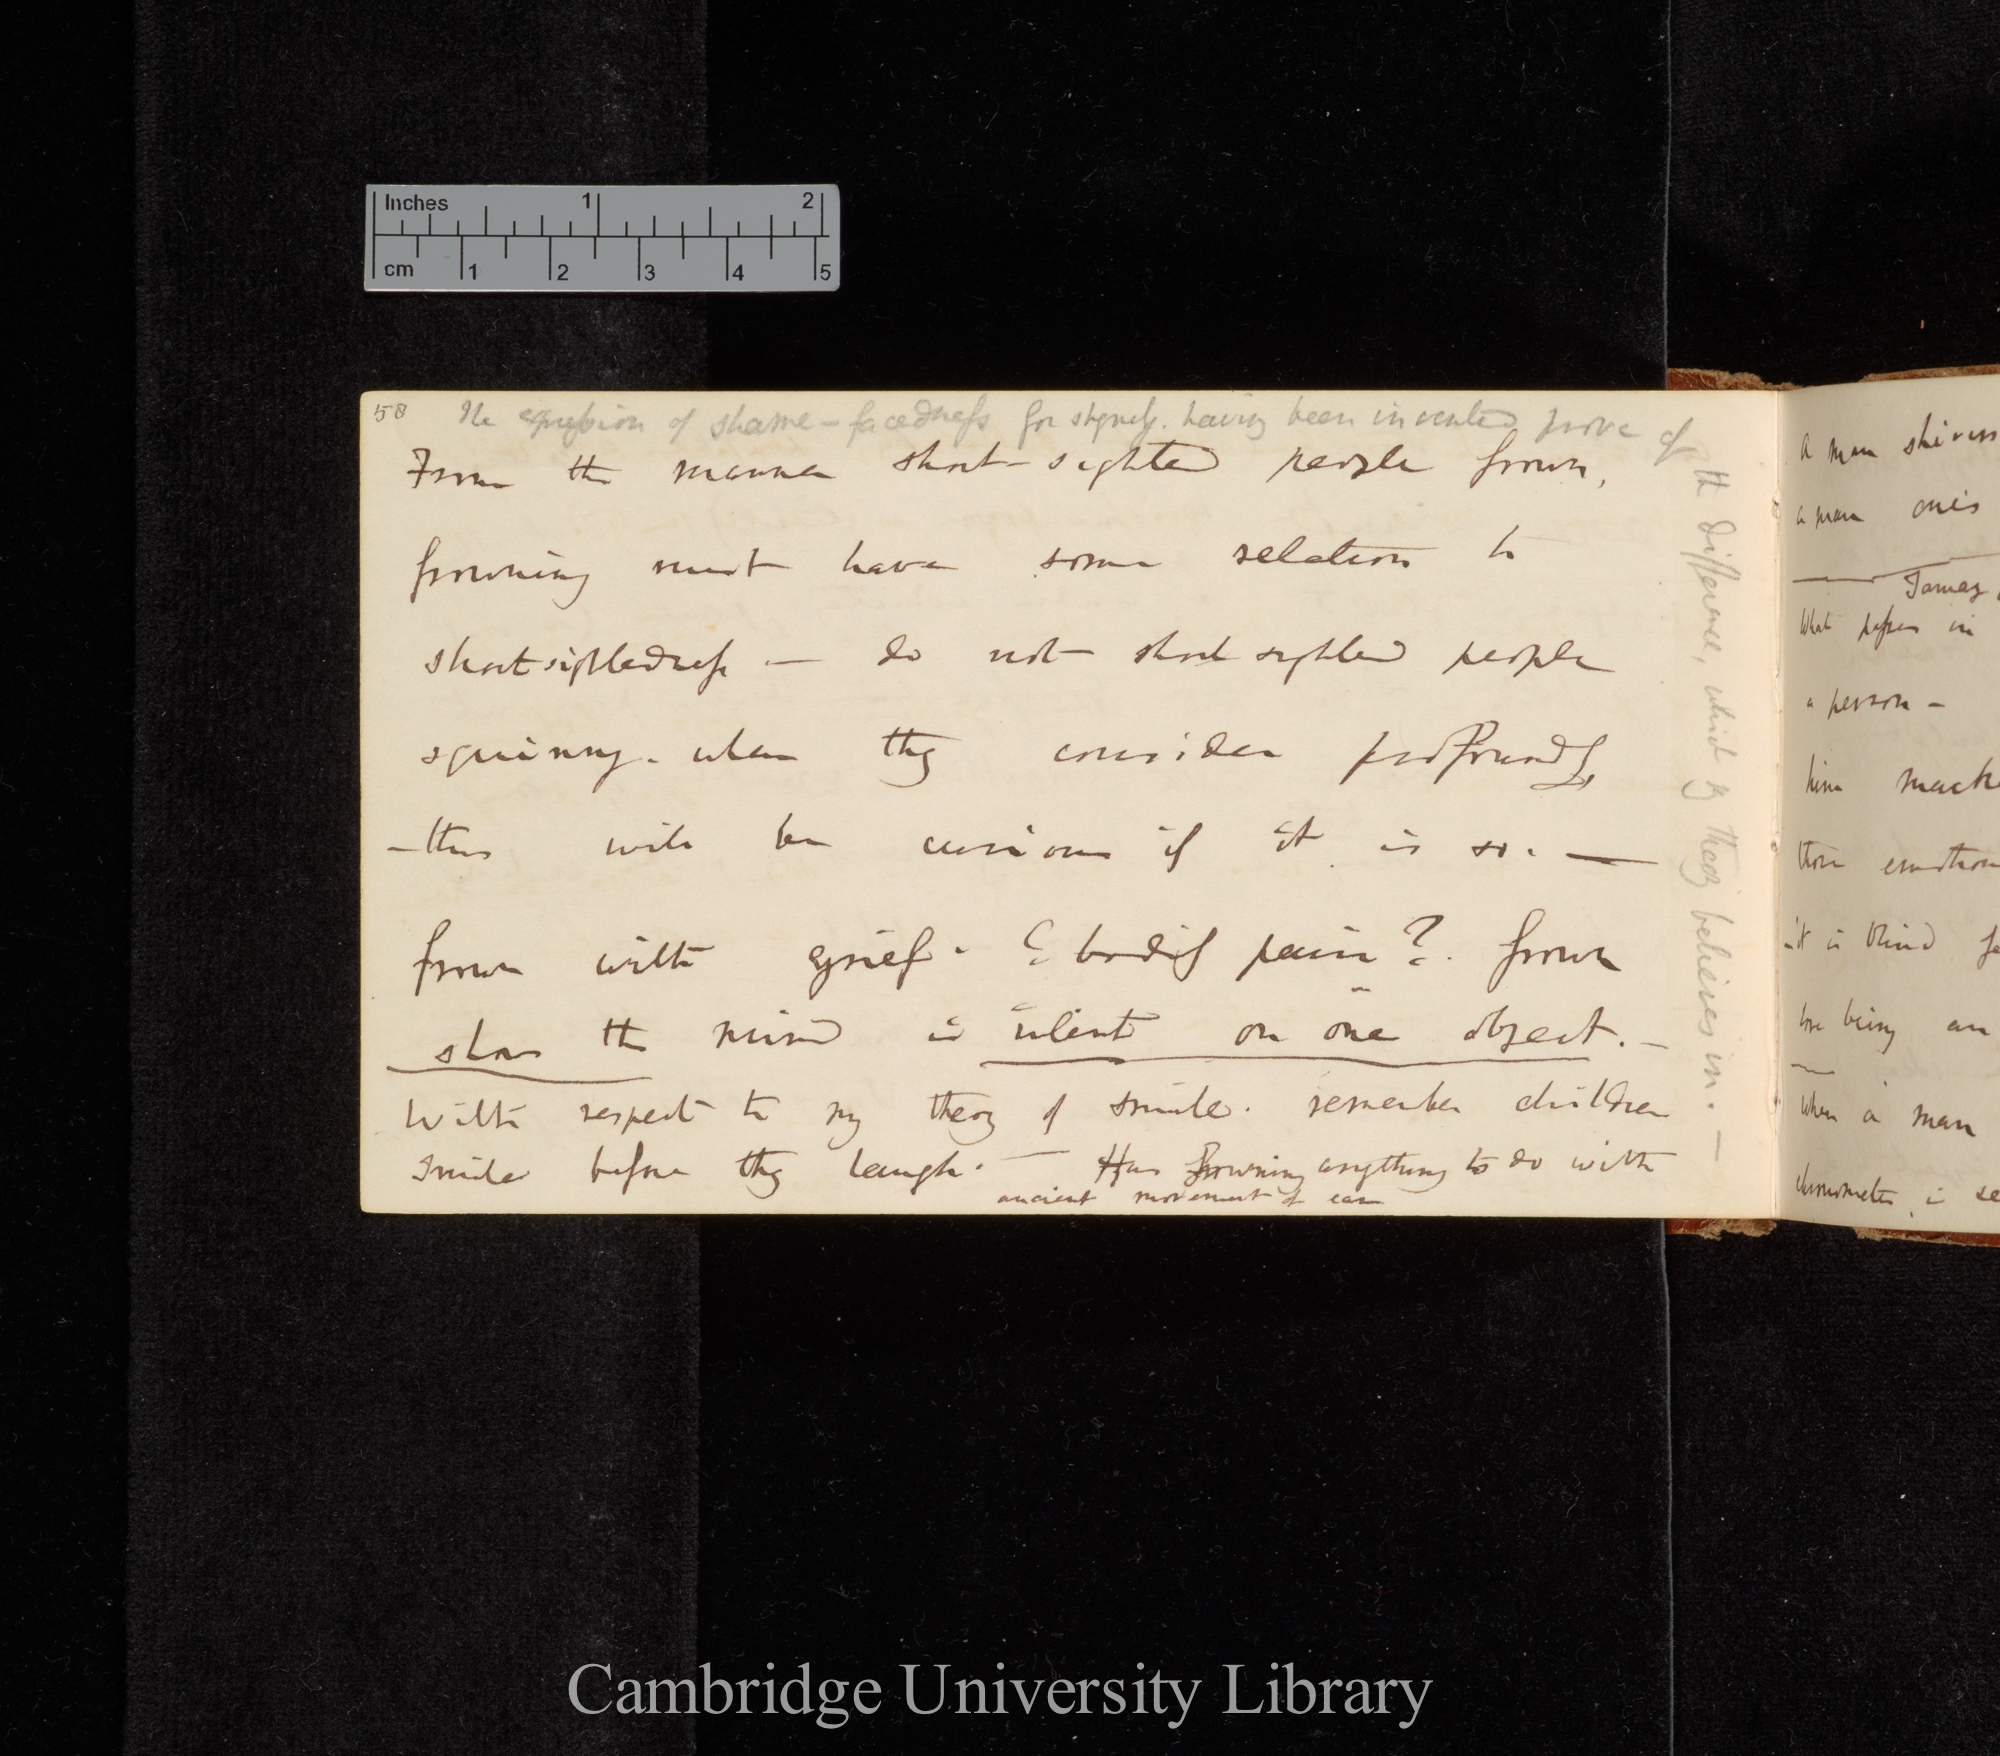 Inches 1 2
cm 1 2 3 4 5
58 The expression of shame-facedness for having been invented prove of
the difference, which my theory believes in. —
From the manner short-sighted people frown,
frowning must have some relation to
shortsightedness — do not short sighted people
squinny. when they consider profoundly,
— this will be curious if it is so. —
frown with grief. ¿bodily pain?. frown
shows the mind is intent on one object. —
With respect to my theory of smile. remember children
smile before they laugh. — Has frowning anything to do with
ancient movement of ears
a man shivers
a man cries
What passes in
a person —
him
those emotions
it is blind
love being an
When a man
chronometer, is se
Cambridge University Library